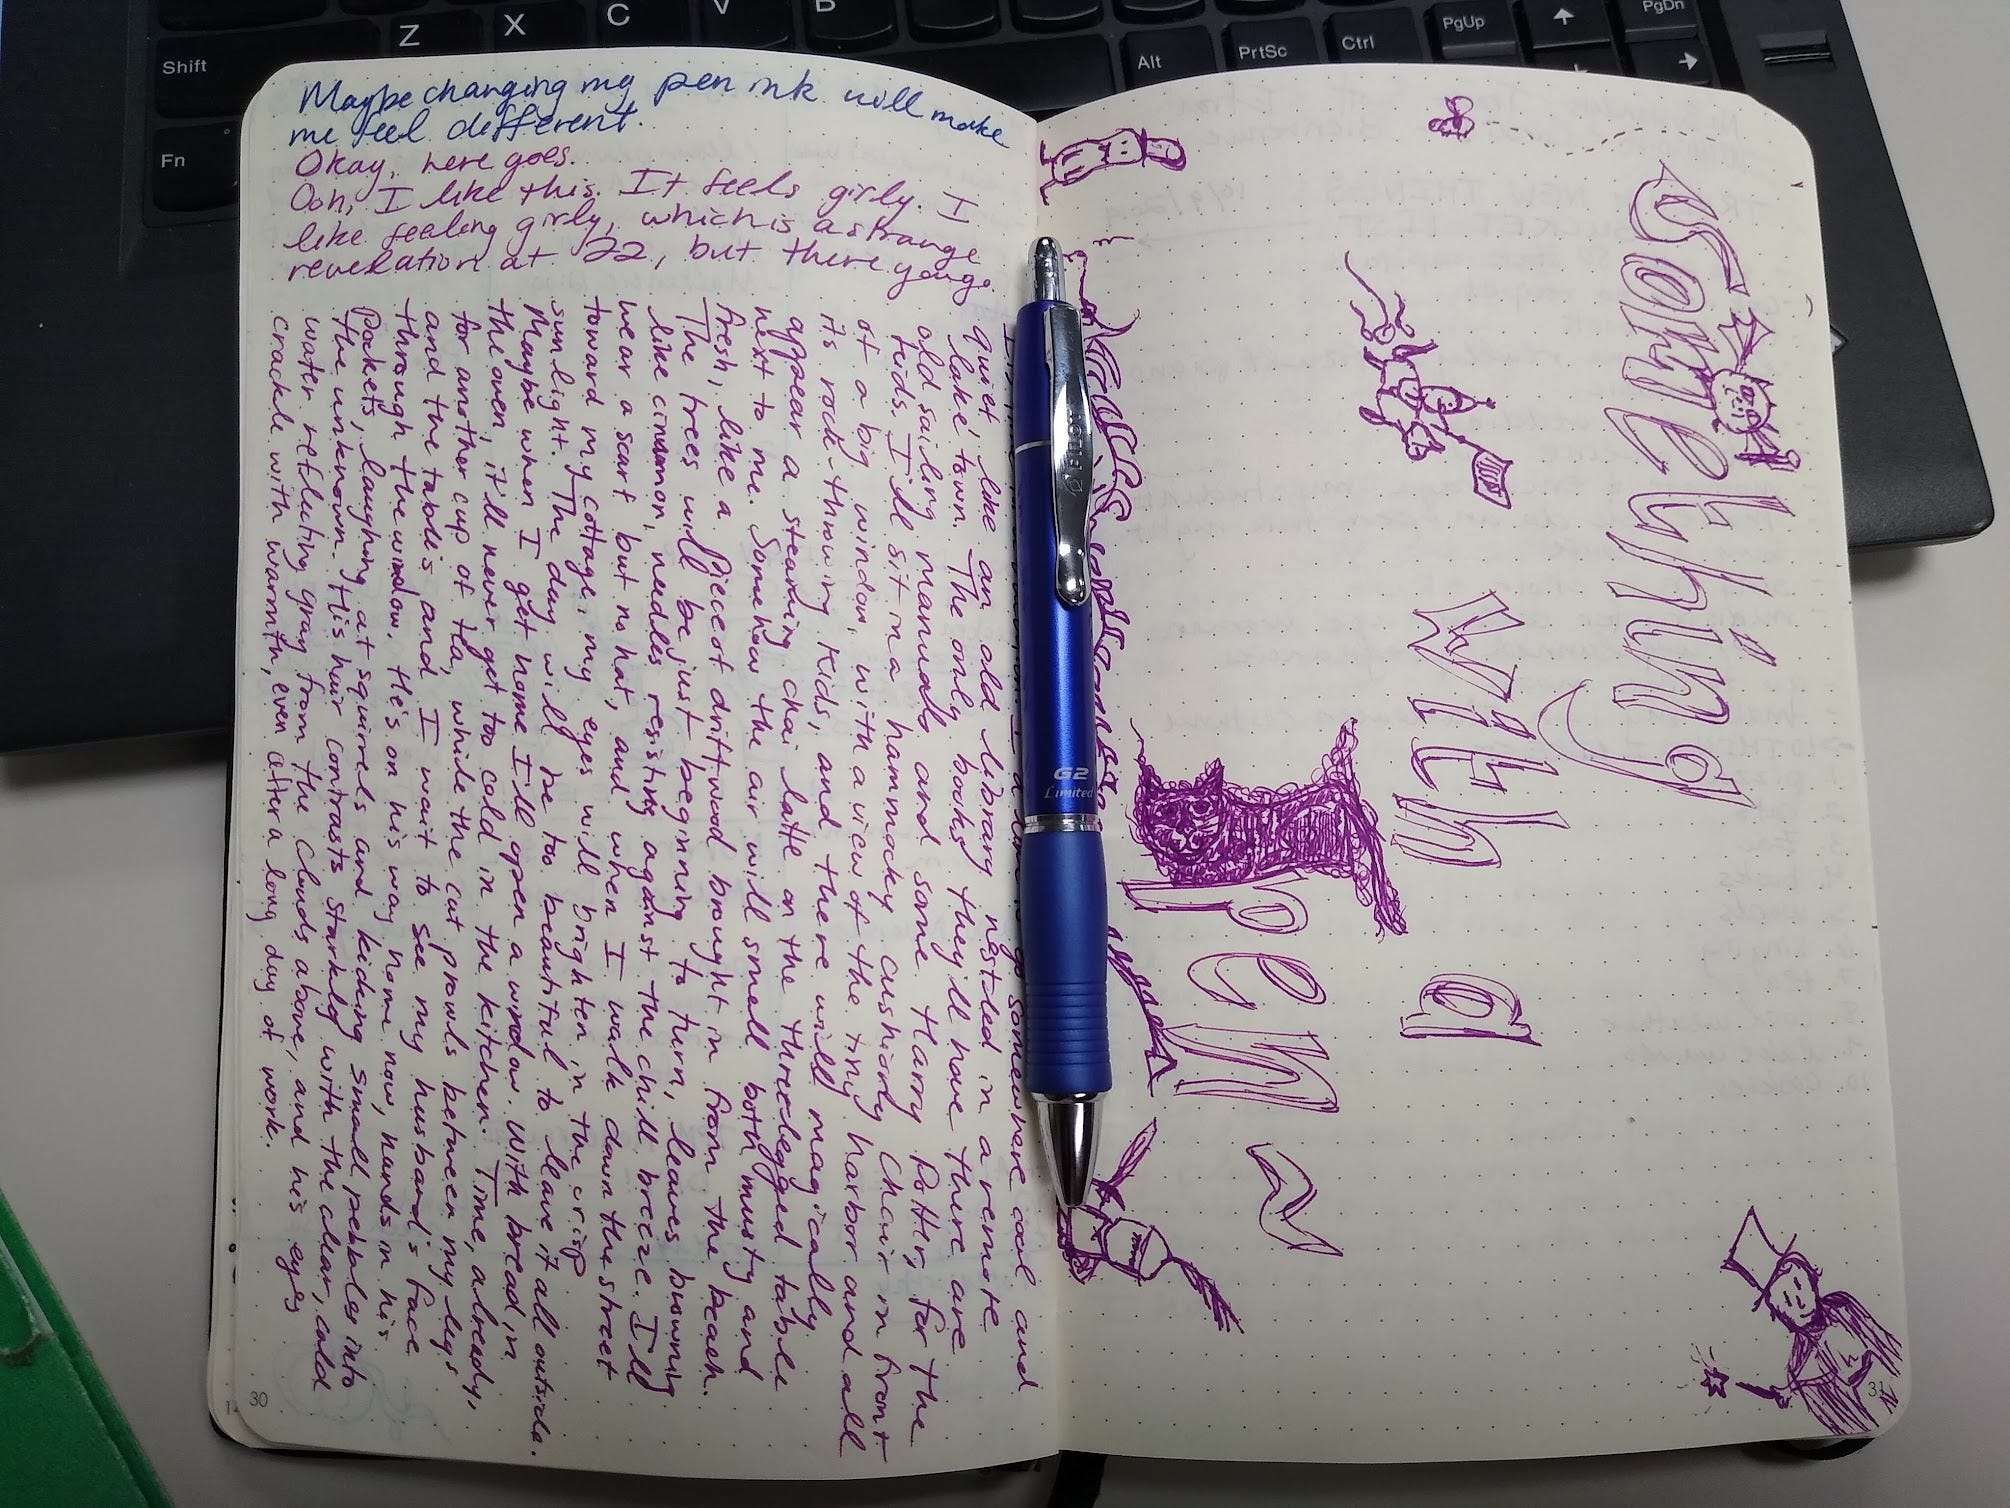 Shift
Z
X
C
V
B
Alt
PrtSc
Ctrl
PgUp
PgDn
Fn
Maybe changing my pen ink will make
me feel different.
Okay, here goes.
Ooh, I like this. It feels girly. I
like feeling girly, which is a strange
revelation at 22, but there you go.
I to go somewhere cool and
quiet like an old library nestled in a remote
lake town. The only books they'll have there are
old sailing manuals and some Harry Potter, for the
kids. I'll sit in a hammocky cushiony chair in front
of a big window, with a view of the tiny harbor and all
its rock-throwing kids, and there will magically
appear a steaming chai latte on the three-legged table
next to me. Somehow the air will smell both musty and
fresh, like a piece of driftwood brought in from the beach.
The trees will be just beginning to turn, leaves browning
like cinnamon, needles resisting against the chill breeze. I'll
wear a scarf but no hat, and when I walk down the street
toward my cottage, my eyes will brighten in the crisp
sunlight. The day will be too beautiful to leave it all outside.
Maybe when I get home I'll open a window. With bread in
the oven, it'll never get too cold in the kitchen. Time, already,
for another cup of tea, while the cat prowls between my legs
and the table's and I wait to see my husband's face
through the window. He's on his way home now, hands in his
pockets, laughing at squirrels and kicking small pebbles into
the unknown. His hair contrasts starkly with the clear, cold
water reflecting gray from the clouds above, and his eyes
crackle with warmth, even after a long day of work.
30
PILOT
G2
Limited
Something
With a
Pen
~
31